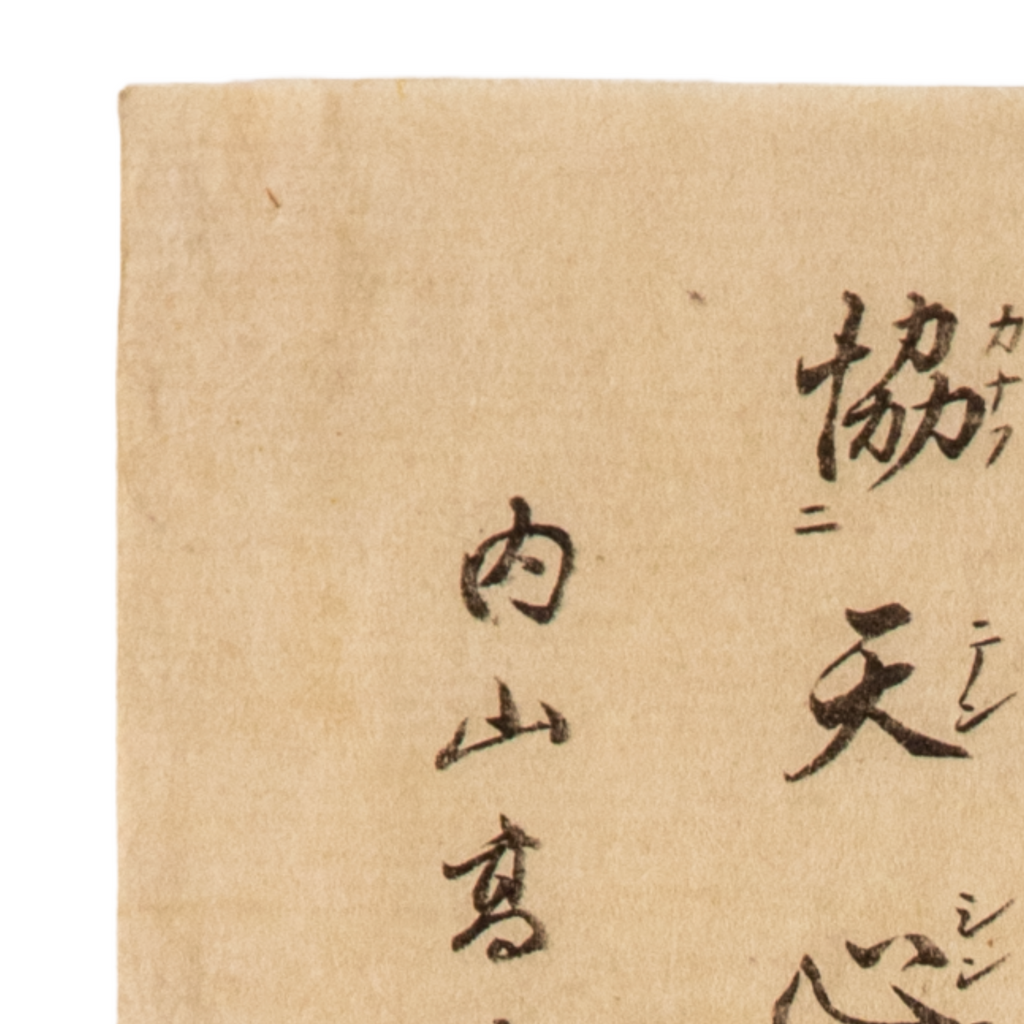 協天心
カナフ テン シン
二
内山高